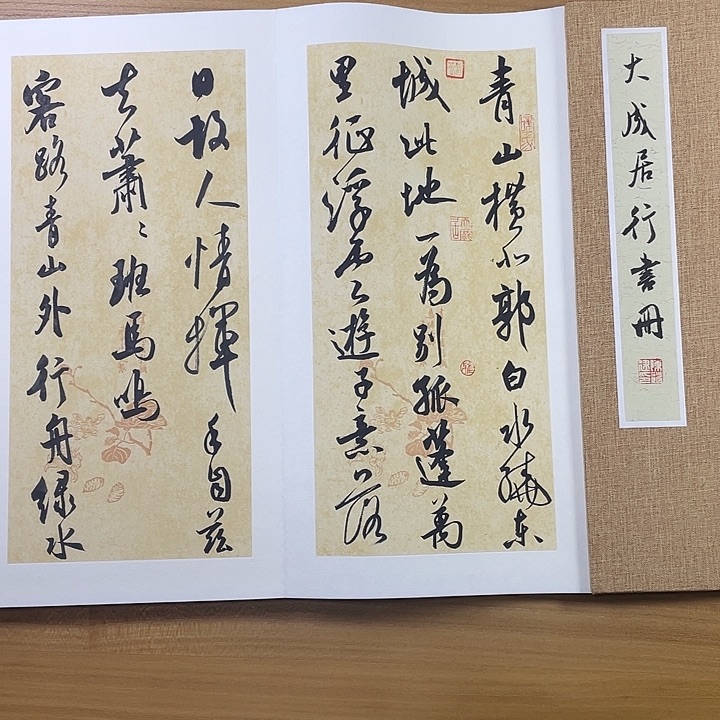 大成居行書冊
青山橫北郭白水繞東
城此地一為別孤蓬萬
里征浮雲遊子意落
日故人情揮手自茲
去蕭〻班馬鳴
客路青山外行舟綠水